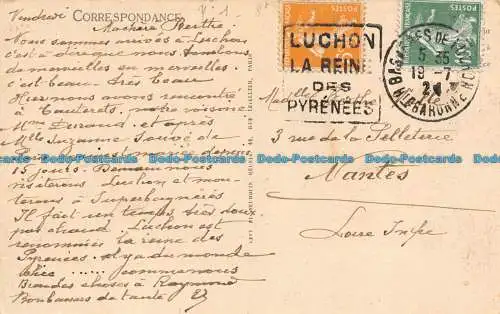 Vendredi
CORRESPONDANCE
Ma chère Marthe
Nous sommes arrivés à Luchon
c'est à dire que nous tombons
de merveilles en merveilles.
c'est beau très beau
Hier nous avons rencontré
à Cauterets notre voisine
Mme Durand et après
Mlle Suzanne
15 jours. Demain nous
visiterons Luchon et mon-
terons à Superbagnères
Il fait un temps très doux
pas chaud. Luchon est
renommée la reine des
Pyrénées. il y a du monde
chic ...... comme nous
Grandes choses à Raymond
Bons baisers de tante
POSTES
POSTES
LUCHON
LA REINE
DES
PYRÉNÉES
BAGNERES DE LUCHON
5-35
19-7
24
HTE GARONNE
3 rue de la Pelleterie
Nantes
Loire Infre
Dodo-Postcards Dodo-Postcards Dodo-Postcards Dodo-Postcards